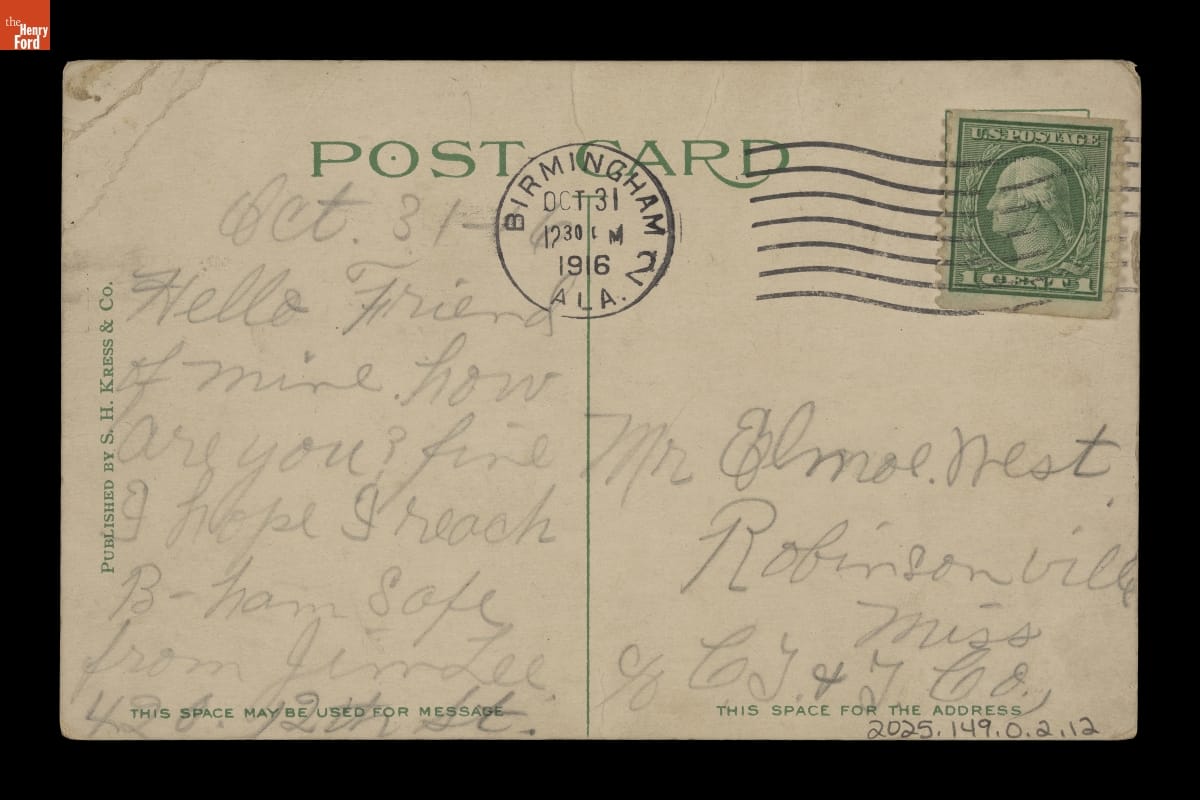 the
Henry
Ford
POST CARD
BIRMINGHAM
OCT 31
1230 M
1916
ALA.
U.S. POSTAGE
1 CENT 1
PUBLISHED BY S. H. KRESS & CO.
Oct. 31-6
Hello Friend
of mine. how
are you? fine
I hope I reach
B-ham Safe
from Jim Lee.
12th St.
THIS SPACE MAY BE USED FOR MESSAGE
Mr Elmoe. West
Robinsonville
Miss
c/o C. J. & J. Co.,
THIS SPACE FOR THE ADDRESS
2025.149.0.2.12